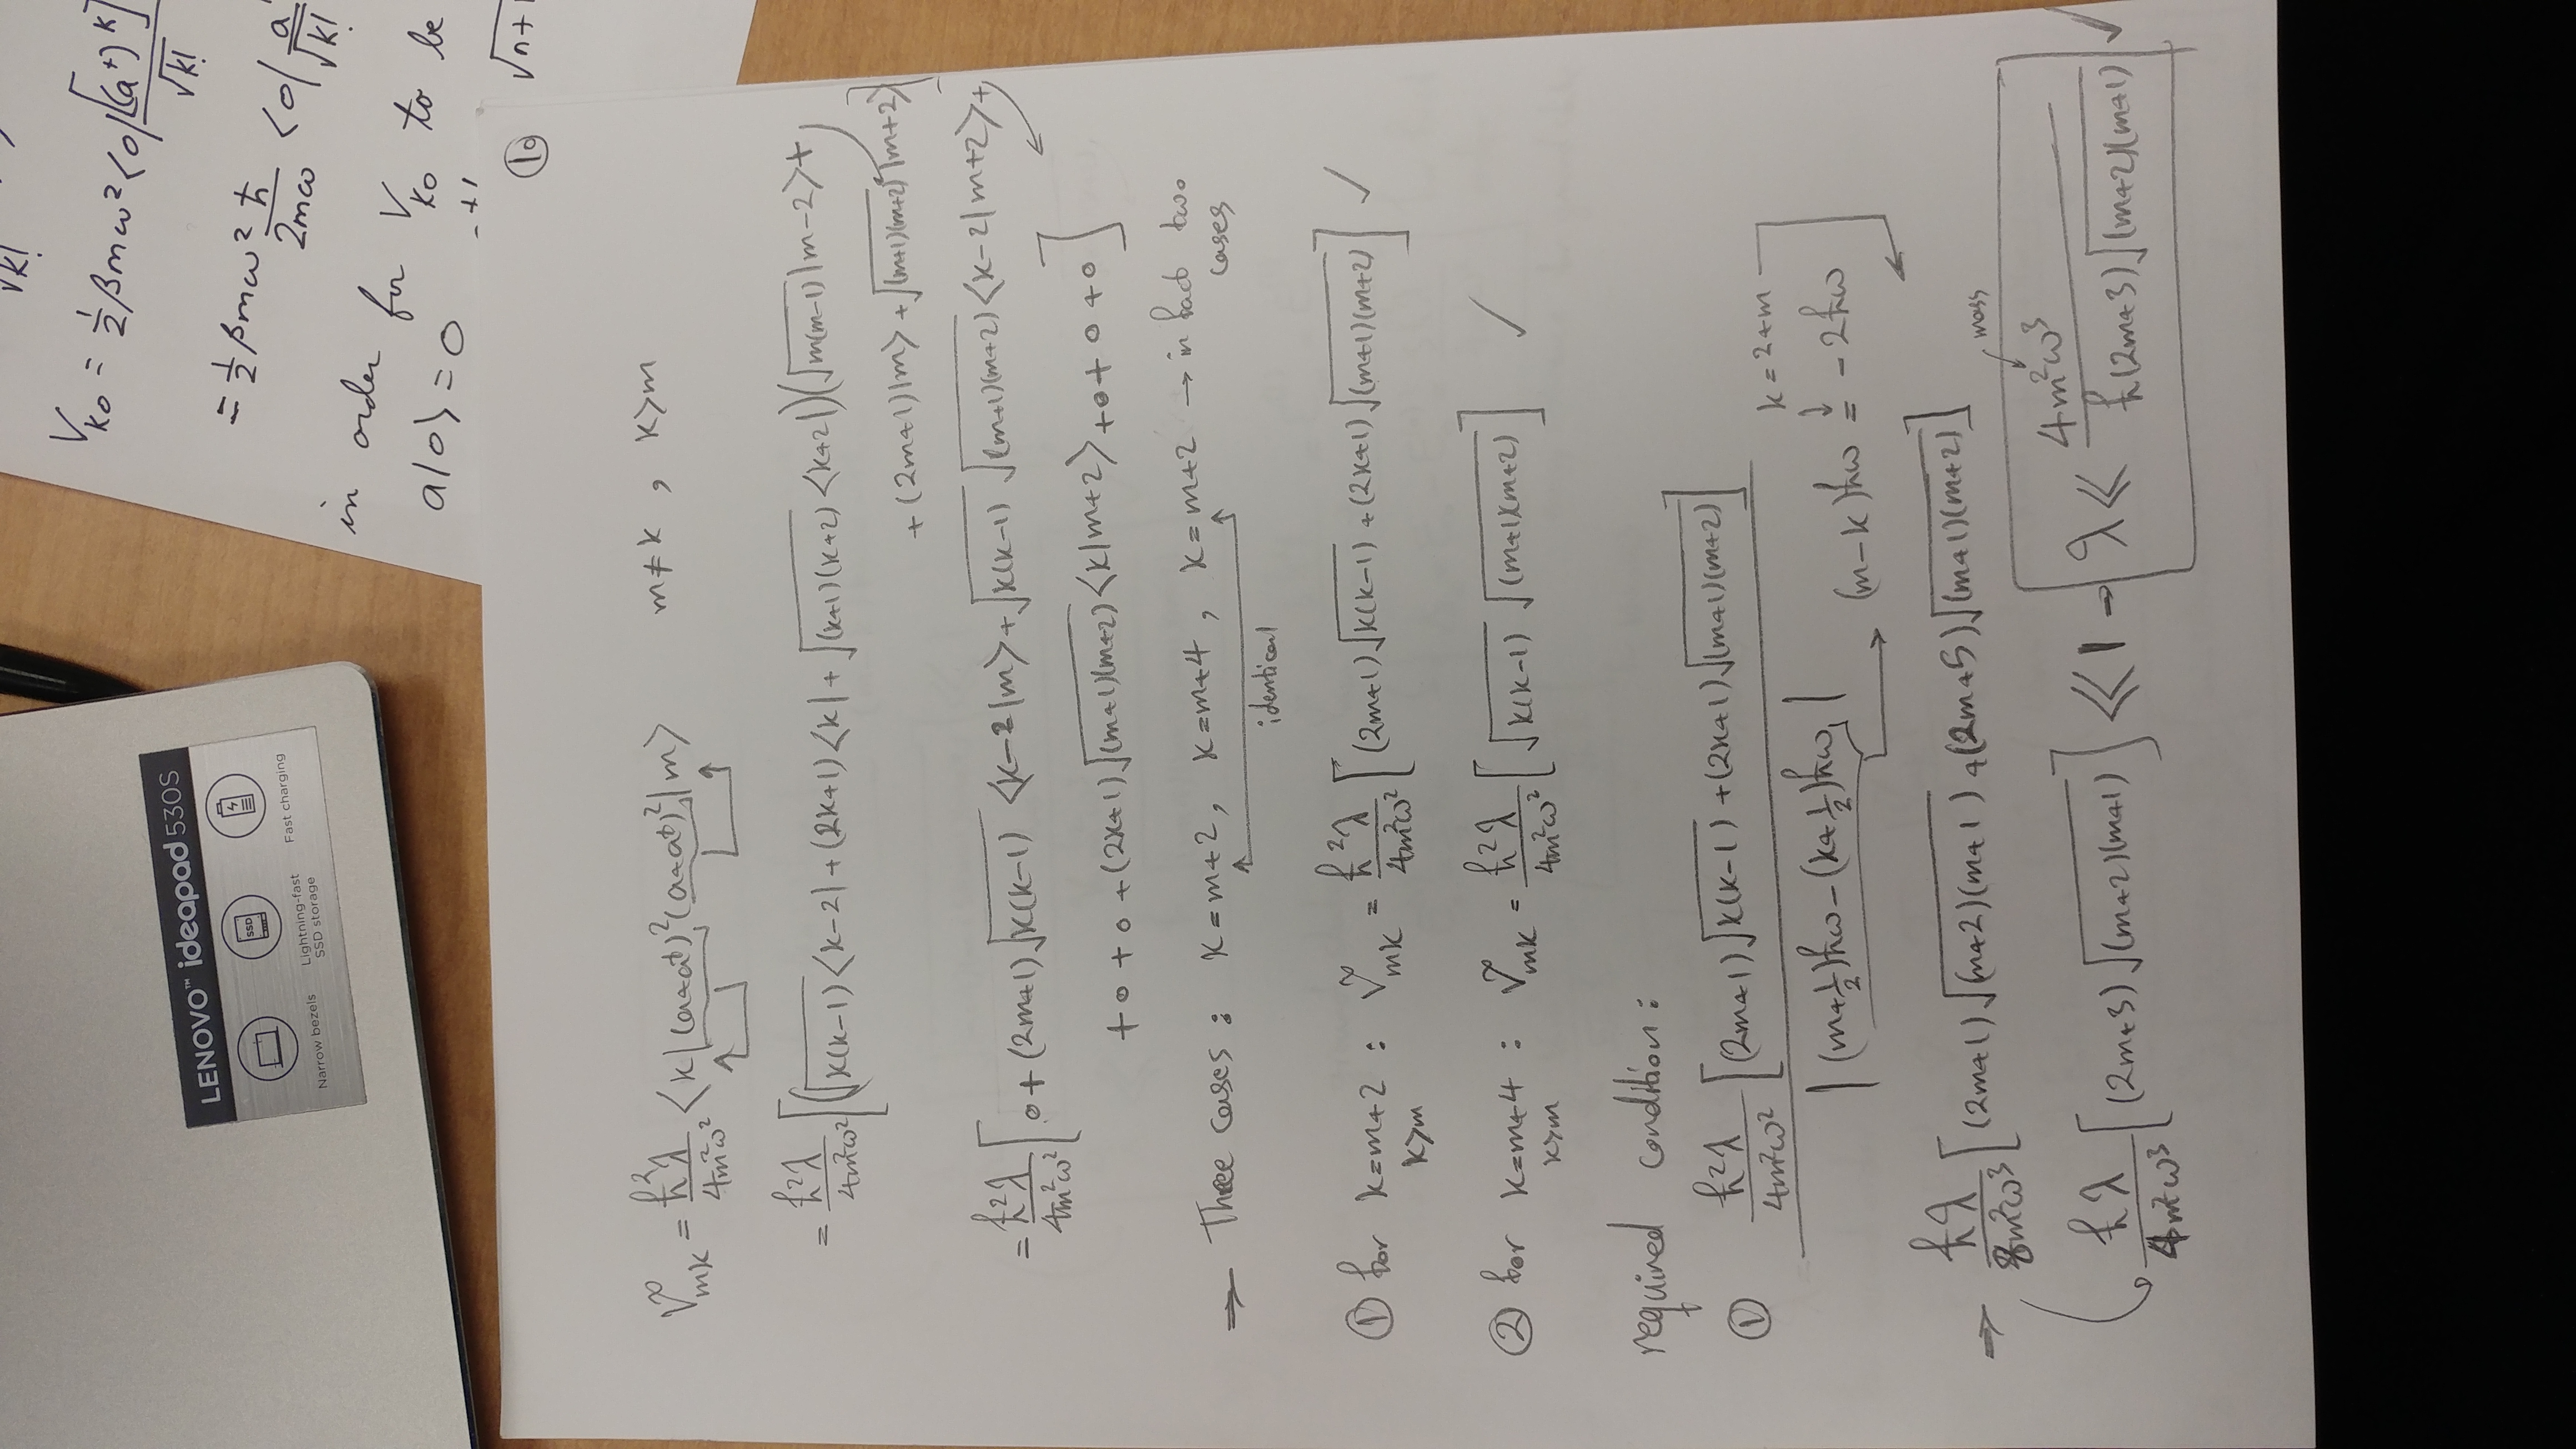 LENOVO™ ideapad 530S
SSD
Narrow bezels
Lightning-fast
SSD storage
Fast charging
√k!
V_{k0} = 1/2 βmω² <0|[(a†)^k]/√k!
= 1/2 βmω² ħ/2mω <0| a/√k!
in order for V_{k0} to be
a|0> = 0
+1
√n+1
⑩
Ṽ_{mk} = ħ²λ/4m²ω² <k|(a+a†)²(a+a†)²|m>   m≠k , k>m
= ħ²λ/4m²ω² [(√k(k-1) <k-2| + (2k+1)<k| + √(k+1)(k+2) <k+2|)(√m(m-1) |m-2> +
+ (2m+1)|m> + √(m+1)(m+2) |m+2>]
= ħ²λ/4m²ω² [0 + (2m+1)√k(k-1) <k-2|m> + √k(k-1) √(m+1)(m+2) <k-2|m+2> +
+ 0 + 0 + (2k+1)√(m+1)(m+2) <k|m+2> + 0 + 0 + 0]
⇒ Three cases : k=m+2, k=m+4 , k=m+2 → in fact two
cases
identical
① for k=m+2 : Ṽ_{mk} = ħ²λ/4m²ω² [(2m+1)√k(k-1) + (2k+1)√(m+1)(m+2)] ✓
k>m
② for k=m+4 : Ṽ_{mk} = ħ²λ/4m²ω² [√k(k-1) √(m+1)(m+2)] ✓
k>m
required condition :
① ħ²λ/4m²ω² [(2m+1)√k(k-1) + (2k+1)√(m+1)(m+2)]
k = 2+m
|(m+1/2)ħω - (k+1/2)ħω| → (m-k)ħω = -2ħω
⇒ ħλ/8m²ω³ [(2m+1)√(m+2)(m+1) + (2m+5)√(m+1)(m+2)]
mass
ħλ/4m²ω³ [(2m+3)√(m+2)(m+1)] ≪ 1 → λ ≪ 4m²ω³/ħ(2m+3)√(m+2)(m+1) ✓